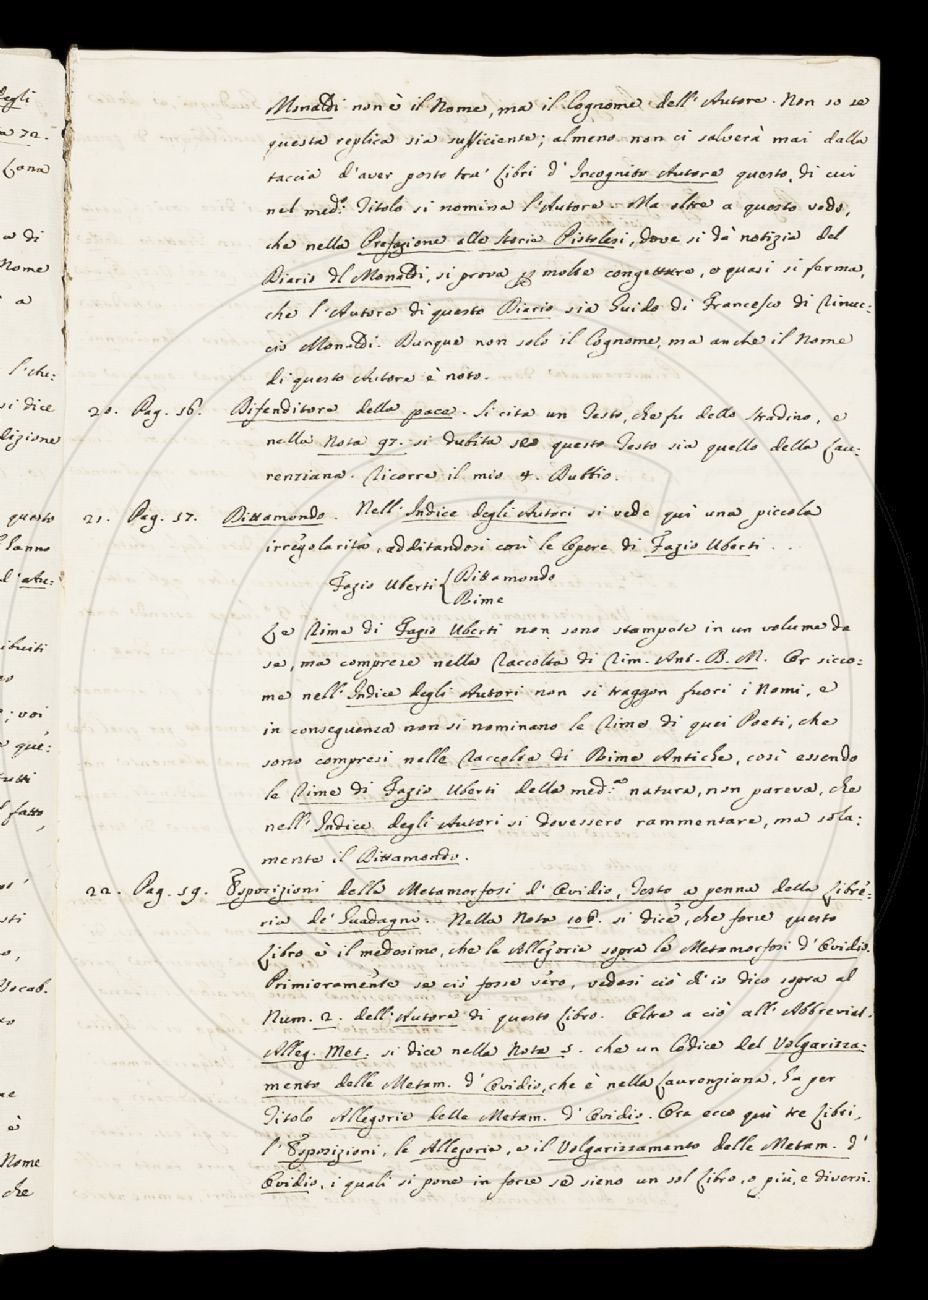 Monaldi non è il Nome, ma il Cognome dell'Autore. Non so se
questa replica sia sufficiente; almeno non ci salverà mai dalla
taccia d'aver posto tra' Libri d'Incognito Autore questo, di cui
nel med.º Titolo si nomina l'Autore. Ma oltre a questo vedo,
che nella Prefazione alle Storie Pistolesi, dove si dà notizia del
Diario del Monaldi, si prova per molte congetture, e quasi si ferma,
che l'Autore di questo Diario sia Guido di Francesco di Rinuc=
cio Monaldi. Dunque non solo il Cognome, ma anche il Nome
di questo Autore è noto.
20. Pag. 36. Difenditore della pace. Si cita un Testo, che fu dello Stradino, e
nella Nota 97. si dubita se questo Testo sia quello della Lau=
renziana. Ricorre il mio 4. Dubbio.
21. Pag. 37. Dittamondo. Nell'Indice degli Autori si vede quì una piccola
irregolarità, additandosi così le Opere di Fazio Uberti...
Fazio Uberti { Dittamondo
Rime
Le Rime di Fazio Uberti non sono stampate in un volume da
se, ma comprese nella Raccolta di Rim. Ant. B. M. Or sicco=
me nell'Indice degli Autori non si traggon fuori i Nomi, e
in conseguenza non si nominano le Rime di quei Poeti, che
sono compresi nelle Raccolte di Rime Antiche, così essendo
le Rime di Fazio Uberti della med.ª natura, non pareva, che
nell'Indice degli Autori si dovessero rammentare, ma sola=
mente il Dittamondo.
22. Pag. 39. Esposizioni delle Metamorfosi d'Ovidio, Testo a penna della Libre=
ria de' Guadagni. Nella Nota 106. si dice, che forse questo
Libro è il medesimo, che le Allegorie sopra le Metamorfosi d'Ovidio.
Primieramente se ciò fosse vero, vedasi ciò ch'io dico sopra al
Num. 2. dell'Autore di questo Libro. Oltre a ciò all'Abbreviat.
Alleg. Met. si dice nella Nota 5. che un Codice del Volgarizza=
mento delle Metam. d'Ovidio, che è nella Laurenziana, ha per
Titolo Allegorie delle Metam. d'Ovidio. Ora ecco quì tre Libri,
l'Esposizioni, le Allegorie, e il Volgarizzamento delle Metam. d'
Ovidio, i quali si pone in forse se sieno un sol Libro, o più, e diversi.